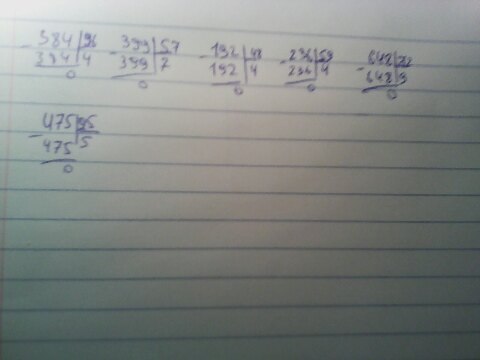 - 384 | 96 - 399 | 57 - 192 | 48 - 236 | 59 - 648 | 72
384 | 4 399 | 7 192 | 4 236 | 4 648 | 9
0 0 0 0 0
- 475 | 95
475 | 5
0